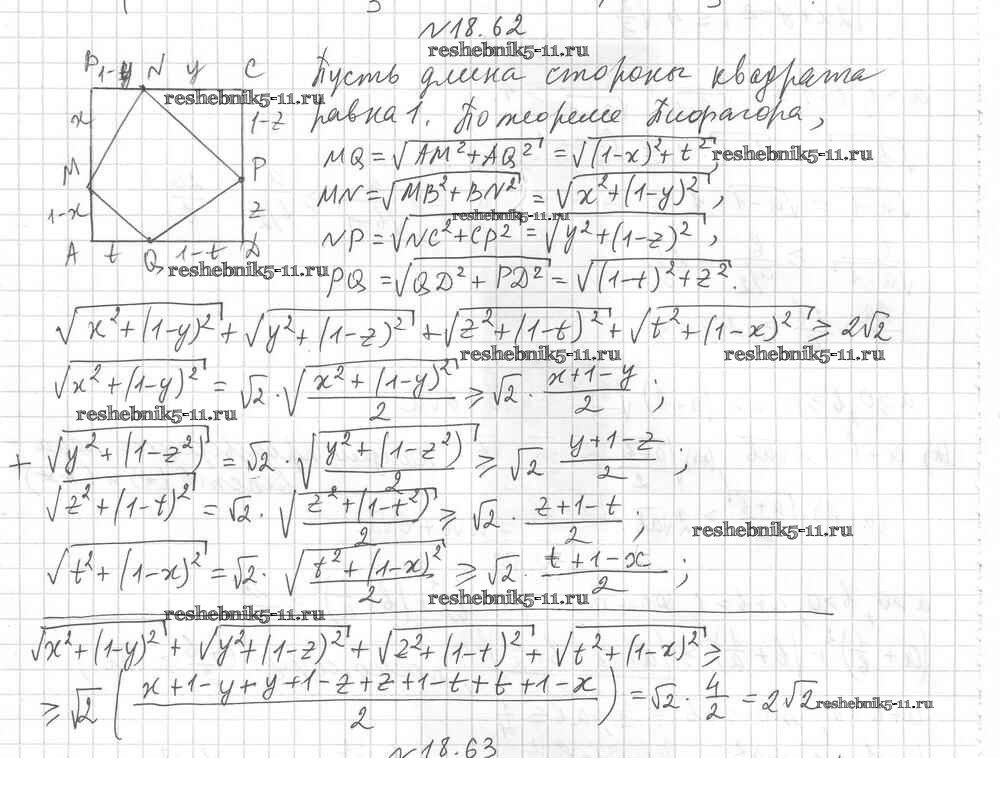 №18.62
reshebnik5-11.ru
P 1-y N y C
reshebnik5-11.ru
Пусть длина стороны квадрата
x 1-z равна 1. По теореме Пифагора,
MQ = √(AM²+AQ²) = √((1-x)²+t²), reshebnik5-11.ru
M P
MN = √(MB²+BN²) = √(x²+(1-y)²),
reshebnik5-11.ru
1-x z
NP = √(NC²+CP²) = √(y²+(1-z)²),
A t Q 1-t D
reshebnik5-11.ru
PQ = √(QD²+PD²) = √((1-t)²+z²).
√(x²+(1-y)²) + √(y²+(1-z)²) + √(z²+(1-t)²) + √(t²+(1-x)²) ≥ 2√2
reshebnik5-11.ru reshebnik5-11.ru
√(x²+(1-y)²) = √2 · √((x²+(1-y)²)/2) ≥ √2 · (x+1-y)/2 ;
reshebnik5-11.ru
+ √(y²+(1-z²)) = √2 · √((y²+(1-z²))/2) ≥ √2 (y+1-z)/2 ;
√(z²+(1-t)²) = √2 · √((z²+(1-t²))/2) ≥ √2 · (z+1-t)/2 ;
reshebnik5-11.ru
√(t²+(1-x)²) = √2 · √((t²+(1-x)²)/2) ≥ √2 · (t+1-x)/2 ;
reshebnik5-11.ru reshebnik5-11.ru
√(x²+(1-y)²) + √(y²+(1-z)²) + √(z²+(1-t)²) + √(t²+(1-x)²) ≥
≥ √2 ((x+1-y+y+1-z+z+1-t+t+1-x)/2) = √2 · 4/2 = 2√2
reshebnik5-11.ru
№18.63